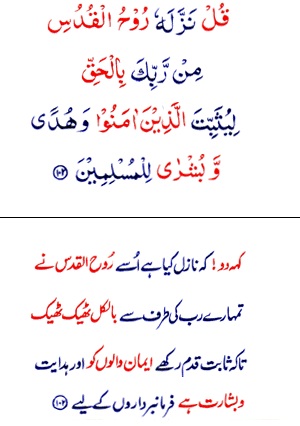 قُلْ نَزَّلَهٗ رُوْحُ الْقُدُسِ
مِنْ رَّبِّكَ بِالْحَقِّ
لِيُثَبِّتَ الَّذِيْنَ اٰمَنُوْا وَهُدًى
وَّ بُشْرٰى لِلْمُسْلِمِيْنَ ﴿۱۰۲﴾
کہہ دو! کہ نازل کیا ہے اُسے رُوح القدس نے
تمہارے رب کی طرف سے بالکل ٹھیک ٹھیک
تاکہ ثابت قدم رکھے ایمان والوں کو اور ہدایت
و بشارت ہے فرمانبرداروں کے لیے ﴿۱۰۲﴾